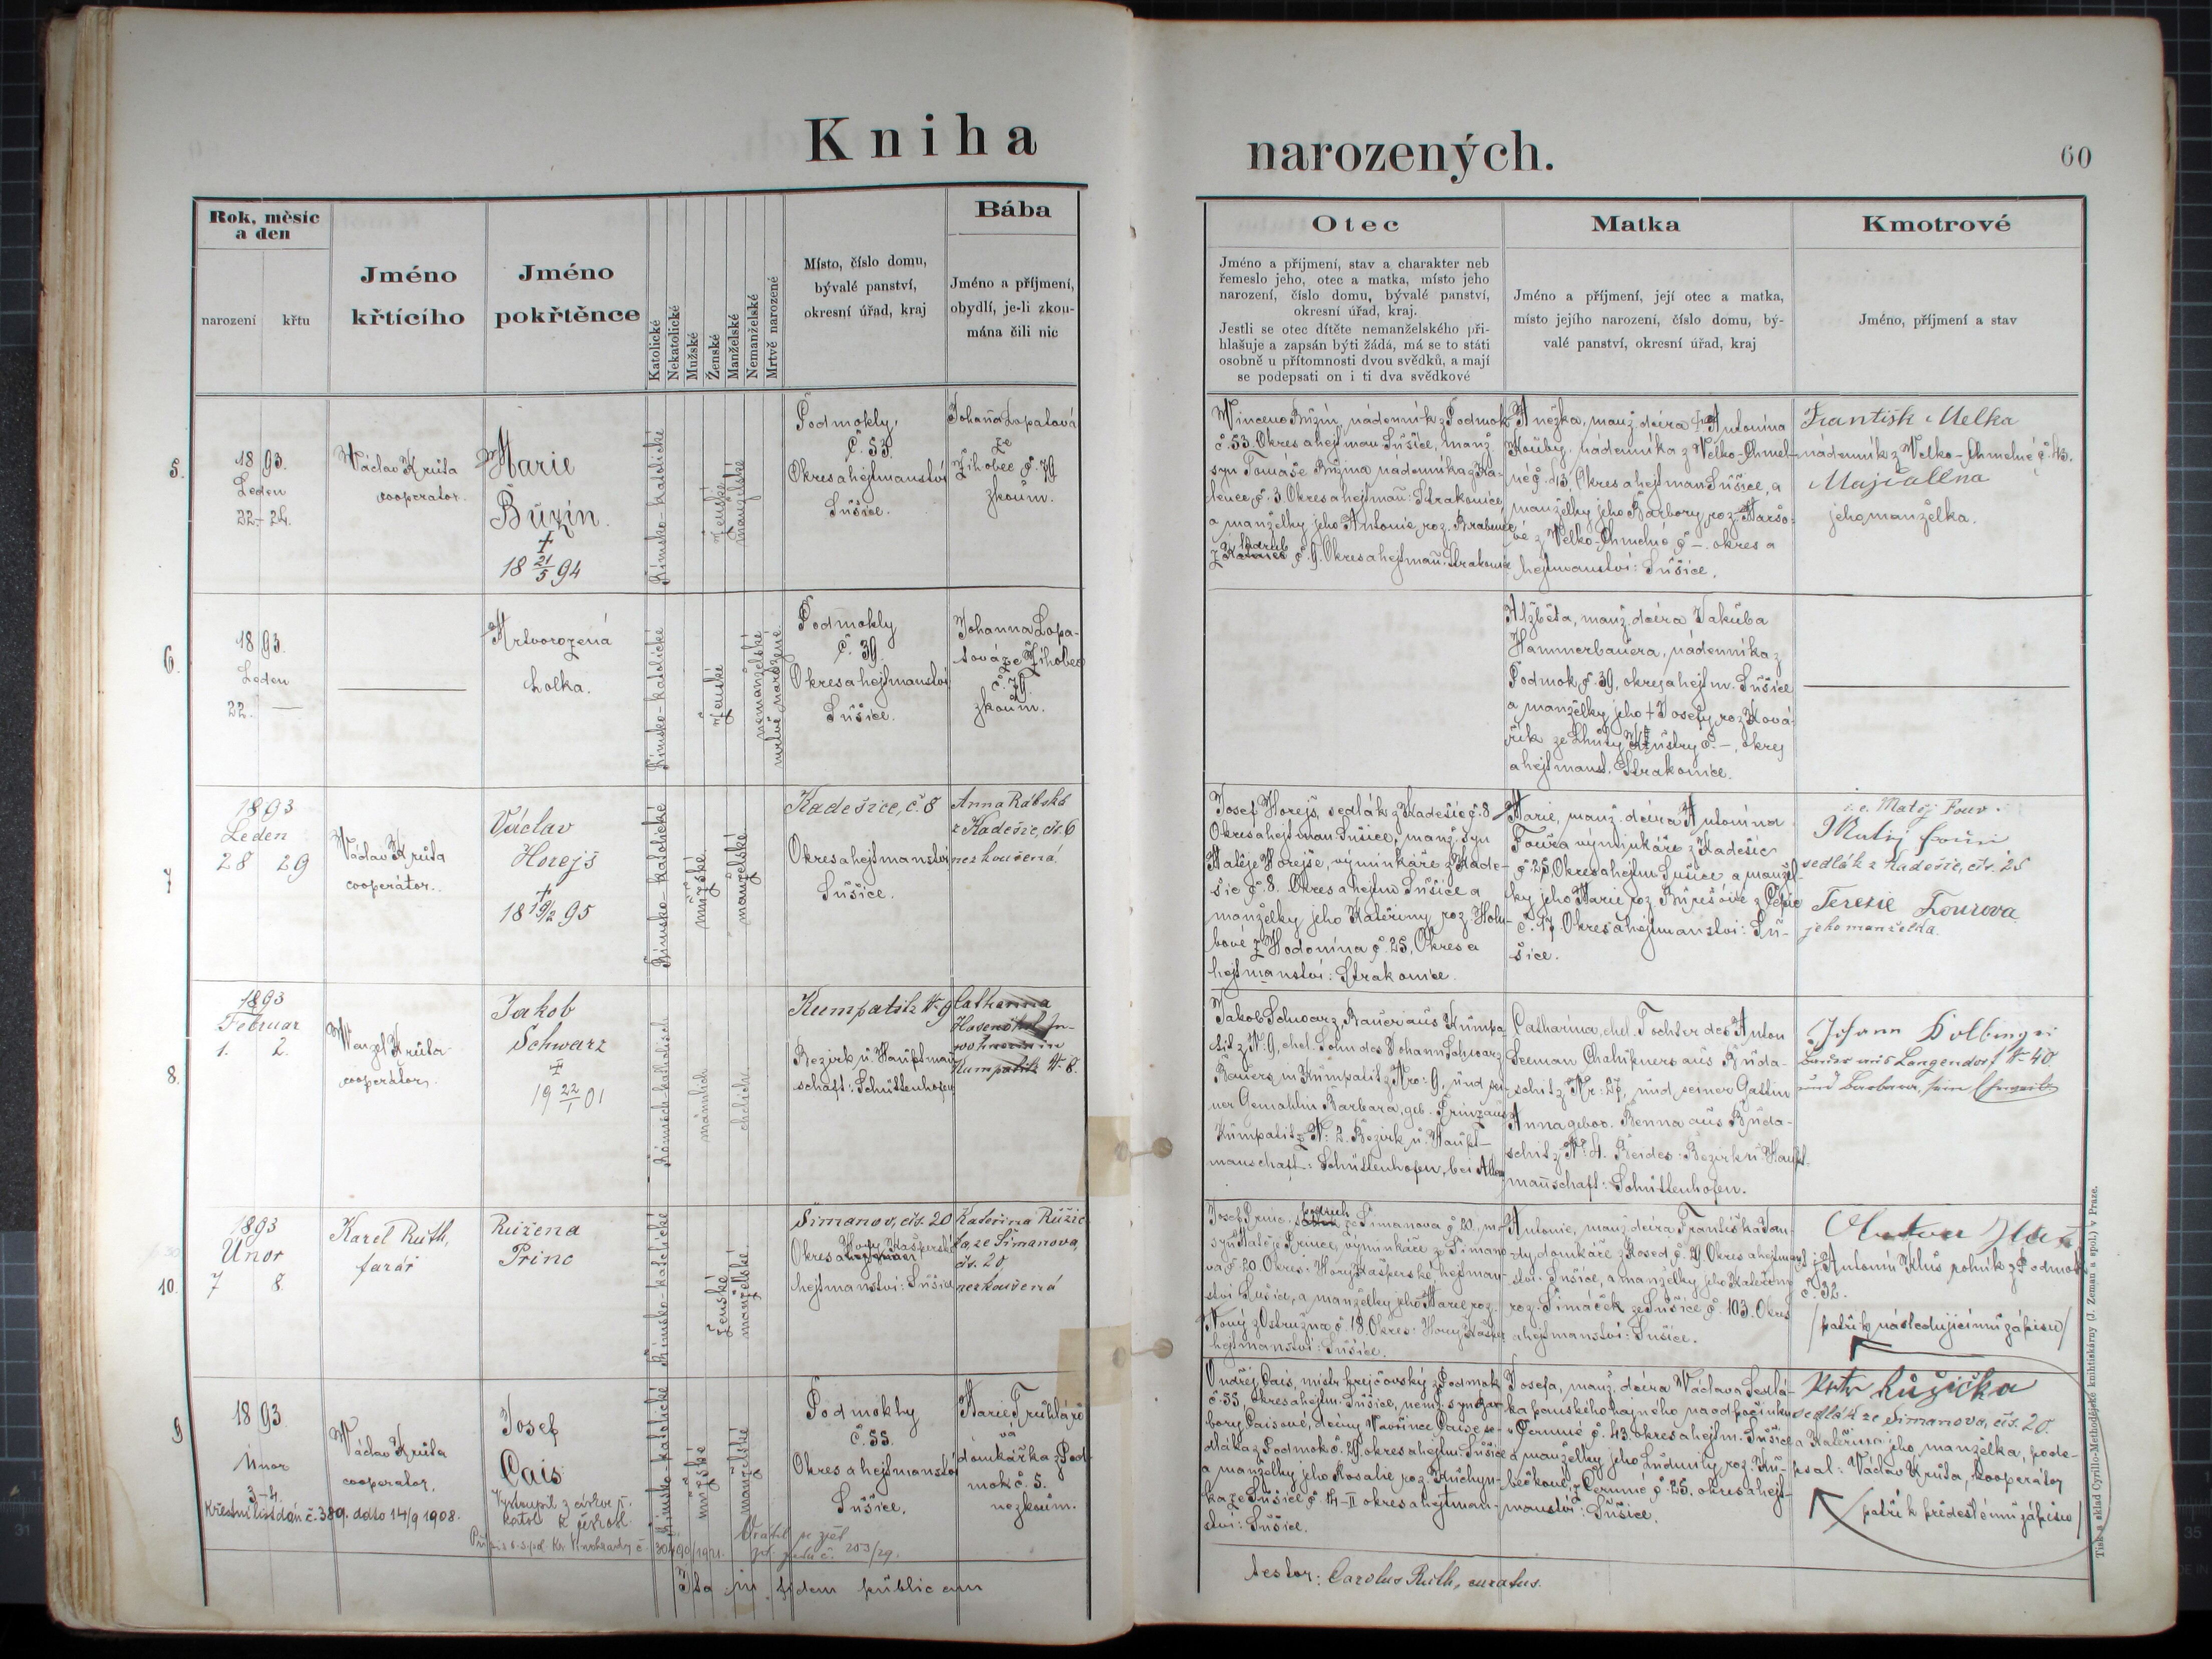 Kniha narozených.
60
Rok, měsíc
a den
narození
křtu
Jméno
křtícího
Jméno
pokřtěnce
Katolické
Nekatolické
Mužské
Ženské
Manželské
Nemanželské
Mrtvě narozené
Místo, číslo domu,
bývalé panství,
okresní úřad, kraj
Bába
Jméno a příjmení,
obydlí, je-li zkou-
mána čili nic
Otec
Jméno a příjmení, stav a charakter neb
řemeslo jeho, otec a matka, místo jeho
narození, číslo domu, bývalé panství,
okresní úřad, kraj.
Jestli se otec dítěte nemanželského při-
hlašuje a zapsán býti žádá, má se to státi
osobně u přítomnosti dvou svědků, a mají
se podepsati on i ti dva svědkové
Matka
Jméno a příjmení, její otec a matka,
místo jejího narození, číslo domu, bý-
valé panství, okresní úřad, kraj
Kmotrové
Jméno, příjmení a stav
5.
1893.
Leden
22-24.
Václav Krůta
cooperator.
Marie
Bůzin.
+
18 21/5 94
Římsko-katolické
ženské
manželské
Podmokly,
č. 53.
Okres a hejtmanství
Sušice.
Johana Lopatová
ze
Žihobec č. 79
zkoum.
Vincenc Bůzin, nádenník z Podmok
č. 53. Okres a hejtman Sušice, manž.
syn Tomáše Bůzina nádenníka z
č. 3. Okres a hejtman: Strakonice,
a manželky jeho Antonie, roz.
č. 9. Okres a hejtman: Strakonice
Anežka, manž. dcera + Antonína
Kouby, nádenníka z Velko-Chmel-
né č. 43. Okres a hejtman Sušice, a
manželky jeho Barbory, roz. Maršo-
vé z Velko-Chmelné č. –. okres a
hejtmanství: Sušice.
František Melka
nádenník z Velko-Chmelné č. 43.
Majdallna
jeho manželka.
6.
1893.
Leden
22. —
Mrtvorozená
holka.
Římsko-katolické
ženské
nemanželské
mrtvě narozené
Podmokly
č. 39.
Okres a hejtmanství
Sušice.
Johanna Lopa-
tová ze Žihobec
č. 79
zkoum.
Alžběta, manž. dcera Jakuba
Hammerbauera, nádenníka z
Podmok č. 39, okres a hejtm. Sušice
a manželky jeho + Josefy roz. Ková-
řík ze Lhůty č. –, okres
a hejtmanst. Strakonice.
7
1893
Leden
28 29
Václav Krůta
cooperátor.
Václav
Horejš
+
18 19/2 95
Římsko-katolické
mužské
manželské
Kadešice, č. 8
Okres a hejtmanství
Sušice.
Anna Rábská
z Kadešic, čís. 6
nezkoušená
Josef Horejš, sedlák z Kadešic č. 8
Okres a hejtman Sušice, manž. syn
Matěje Horejše, výminkáře z Kade-
šic č. 8. Okres a hejtm Sušice a
manželky jeho Kateřiny roz. Holu-
bové z Hodonína č. 25, Okres a
hejtmanství: Strakonice.
Marie, manž. dcera Antonína
Foura výminkáře z Kadešic
č. 25, Okres a hejtm Sušice a manžel-
ky jeho Marie roz. Burešové z
č. 17. Okres a hejtmanství: Su-
šice.
i. e. Matěj Four.
sedlák z Kadešic, čís. 25
Terezie Fourova
jeho manželka.
8.
1893
Februar
1. 2.
Wenzel Krůta
cooperátor.
Jakob
Schwarz
+
19 22/1 01
Römisch-katholisch
männlich
ehelich
Kumpatitz N 9
Bezirk u. Hauptman-
schaft: Schüttenhofen
Catharina
Kumpatitz N. 8.
Jakob Schwarz, Bauer aus Kumpa-
titz N. 9, ehel. Sohn des Johann Schwarz
Bauers in Kumpatitz Nro: 9, und sei-
ner Gemahlin Barbara, geb. Prinz aus
Kumpatitz N: 2. Bezirk u. Haupt-
manschaft: Schüttenhofen, bei Allen
Catharina, ehel. Tochter des Anton
Seeman Chalupners aus Buda-
schitz Nr: 27, und seiner Gattin
Anna gebor. Benna aus Buda-
schitz Nr 4. Beides Bezirk u. Haupt-
manschaft: Schüttenhofen.
Johann
Bauer aus Langendorf N 40
und Barbara, sein Eheweib
10.
1893
Únor
7 8.
Karel Ruth,
farář
Ruižena
Princ
Římsko-katolické
ženské
manželské
Šimanov, čís. 20
Okres Hory Kašperské
hejtmanství: Sušice
Kateřina Růžič-
ka, ze Šimanova,
čís. 20,
nezkoušená
Josef Princ, podruh ze Šimanova č. 20, m.
syn Matěje Prince, výminkáře ze Šimano-
va č. 20. Okres: Hory Kašperské, hejtman-
ství Sušice, a manželky jeho Marie roz.
Nový z Ostružna č. 18. Okres: Hory Kašper
hejtmanství: Sušice.
Antonie, manž. dcera Františka Van-
dy, domkáře z Rosed č. 29. Okres a hejtman-
ství: Sušice, a manželky jeho Kateřiny
roz. Šimáček ze Sušice č. 103. Okres
a hejtmanství: Sušice.
Antonín Kluš rolník z Podmok
č. 32.
/patří k následujícímu zápisu/
9
1893.
Únor
3-4.
Václav Krůta
cooperator.
Josef
Cais
Křestní list dán č. 389. ddto 14/9 1908.
Vystoupil z církve ř.
katol. k českosl.
30490/1921.
Vrátil se zpět
203/29.
Římsko-katolické
mužské
manželské
Podmokly
č. 55.
Okres a hejtmanství
Sušice.
Marie Truhlářo-
va
domkářka z Pod-
mok č. 5.
nezkoum.
Ondřej Cais, mistr krejčovský z Podmok
č. 55, okres a hejtm. Sušice, nemž. syn Bar-
bory Caisové, dcery Vavřince Caise se-
dláka z Podmok č. 29, okres a hejtm. Sušice
a manželky jeho Rosalie roz. Kuchyn-
ka ze Sušice č. 14-II okres a hejtman-
ství: Sušice.
Josefa, manž. dcera Václava Sedlá-
ka panského hajného na odpočinku
v Čermné č. 43. okres a hejtm. Sušice
a manželky jeho Ludmily roz. Ku-
bičkové, z Čermné č. 25. okres a hejt-
manství: Sušice.
Petr Růžička
sedlák ze Šimanova, čís. 20.
a Kateřina jeho manželka, pode-
psal: Václav Krůta, kooperátor
/patří k předešlému zápisu/
Ita in fidem publicam
testor: Carolus Ruth, curatus.
Tisk a sklad Cyrillo-Methodějské knihtiskárny (J. Zeman a spol.) v Praze.